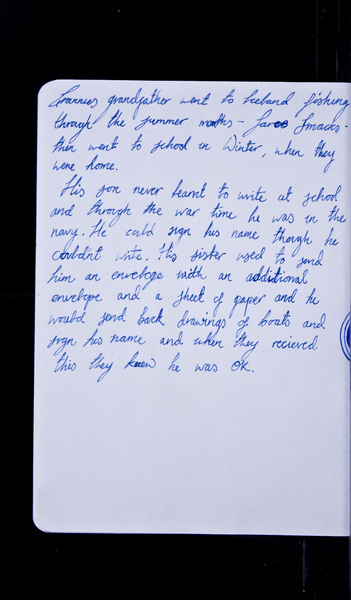 grandfather went to Iceland fishing
through the summer months - Faroe Smacks -
then went to school in Winter, when they
were home.
His son never learnt to write at school
and through the war time he was in the
navy. He could sign his name though he
couldn't write. His sister used to send
him an envelope with an additional
envelope and a sheet of paper and he
would send back drawings of boats and
sign his name and when they recieved
this they knew he was OK.